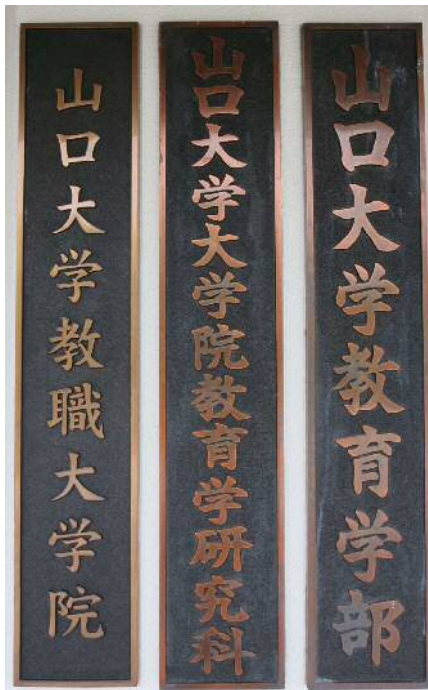 山口大学教育学部
山口大学大学院教育学研究科
山口大学教職大学院